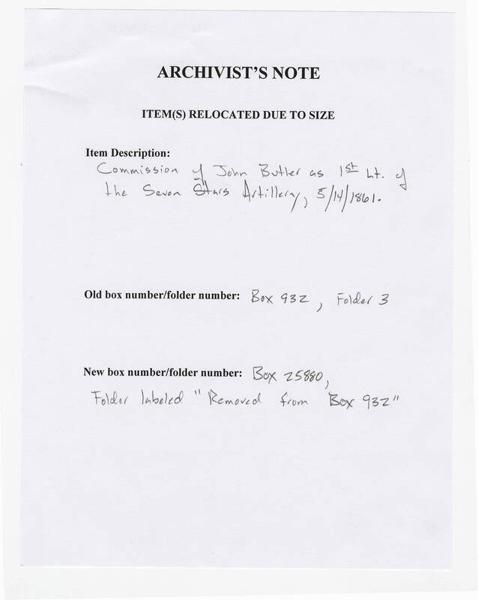 ARCHIVIST'S NOTE
ITEM(S) RELOCATED DUE TO SIZE
Item Description:
Commission of John Butler as 1st Lt. of
the Seven Stars Artillery, 5/14/1861.
Old box number/folder number: Box 932, Folder 3
New box number/folder number: Box 25880,
Folder labeled "Removed from Box 932"